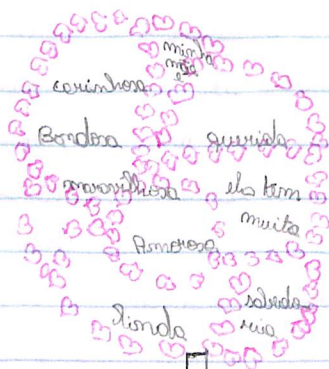 minha
mãe
é
carinhosa
Bondosa
querida
maravilhosa
ela tem
muita
Amorosa
sabedo
ria
linda